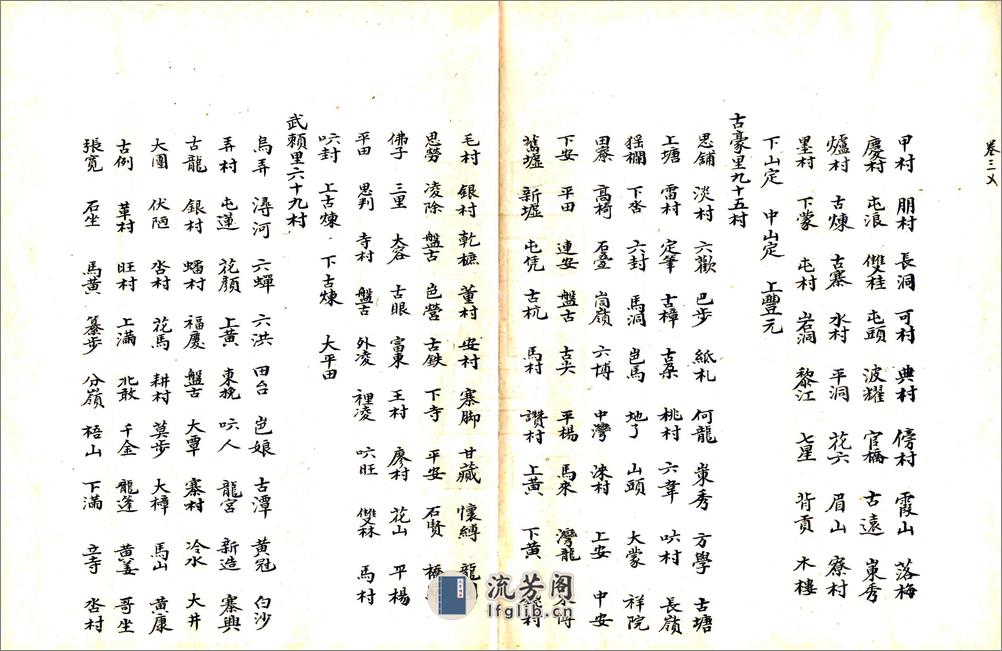 卷三乂
甲村 朋村 長洞 可村 典村 傍村 霞山 落梅
慶村 屯浪 雙桂 屯頭 波耀 官橋 古遠 東秀
爐村 古煉 古寨 水村 平洞 花六 眉山 寮村
墨村 下蒙 屯村 岩洞 黎江 七星 背貢 木樓
下山定 中山定 上豐元
古豪里九十五村
思鋪 淡村 六歡 巴步 紙札 何龍 東秀 方學 古塘
上塘 雷村 定筆 古樟 古桑 桃村 六韋 吹村 長嶺
猺欄 下沓 六封 馬洞 岜馬 地了 山頭 大蒙 祥院
田寮 高椅 石壹 崗嶺 六博 中灣 洡村 上安 中安
下安 平田 連安 盤古 古尖 平楊 馬來 灣龍
舊墟 新墟 屯凭 古杭 馬村 讃村 上黃 下黃
毛村 銀村 乾樜 董村 安村 寨脚 甘藏 懷縛
思勞 凌除 盤古 岜營 古鉄 下寺 平安 石賢
佛子 三里 大容 古眼 富東 王村 廖村 花山 平楊
平田 思判 寺村 盤古 外凌 裡凌 吹旺 雙秝 馬村
吹封 上古煉 下古煉 大平田
武賴里六十九村
烏弄 潯河 六蟬 六洪 田台 岜娘 古潭 黃冠 白沙
弄村 屯蓮 花顏 上黃 東挽 吹人 龍宮 新造 寨興
古龍 銀村 蟠村 福慶 盤古 大覃 寨村 冷水 大井
大團 伏陋 沓村 花馬 耕村 莫步 大樟 馬山 黃康
古例 革村 旺村 上滿 北敢 千金 龍逢 黃姜 哥坐
張寛 石坐 馬黃 纂步 分嶺 梧山 下滿 立寺 沓村
流芳阁
lfglib.cn